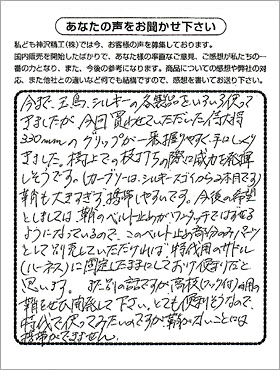 あなたの声をお聞かせ下さい
私ども神沢精工(株)では今、お客様の声を募集しております。
国内販売を開始したばかりで、あなた様の率直なご意見、ご感想が私たちの一
番の力となり、また、今後の参考になります。商品についての感想や弊社の対
応、また他社との違いなど何でも結構ですので、感想を書いてお送り下さい。
今まで、玉鳥、シルキーの各製品をいろいろ使って
きましたが、今回買わせていただいた
330mmのグリップが一番握りやすく手にしっくり
きました。樹上での枝打ちの際に威力を発揮
しそうです。(カーブソーは、シルキーゴムから2本目です)
鞘も大きすぎず携帯しやすいです。今後の希望
としましては、鞘のベルト止めがワンタッチではずせる
ようになっているので、このベルト止め部分のみパーツ
として別売していただければ、特伐用のサドル
(ハーネス)に固定したままにしておけ便利だと
思います。また別の話ですが高枝(フック付)の用の
鞘をぜひ開発して下さい。とても便利そうなので、
特伐で使ってみたいのですが鞘がないことには
携帯ができません。